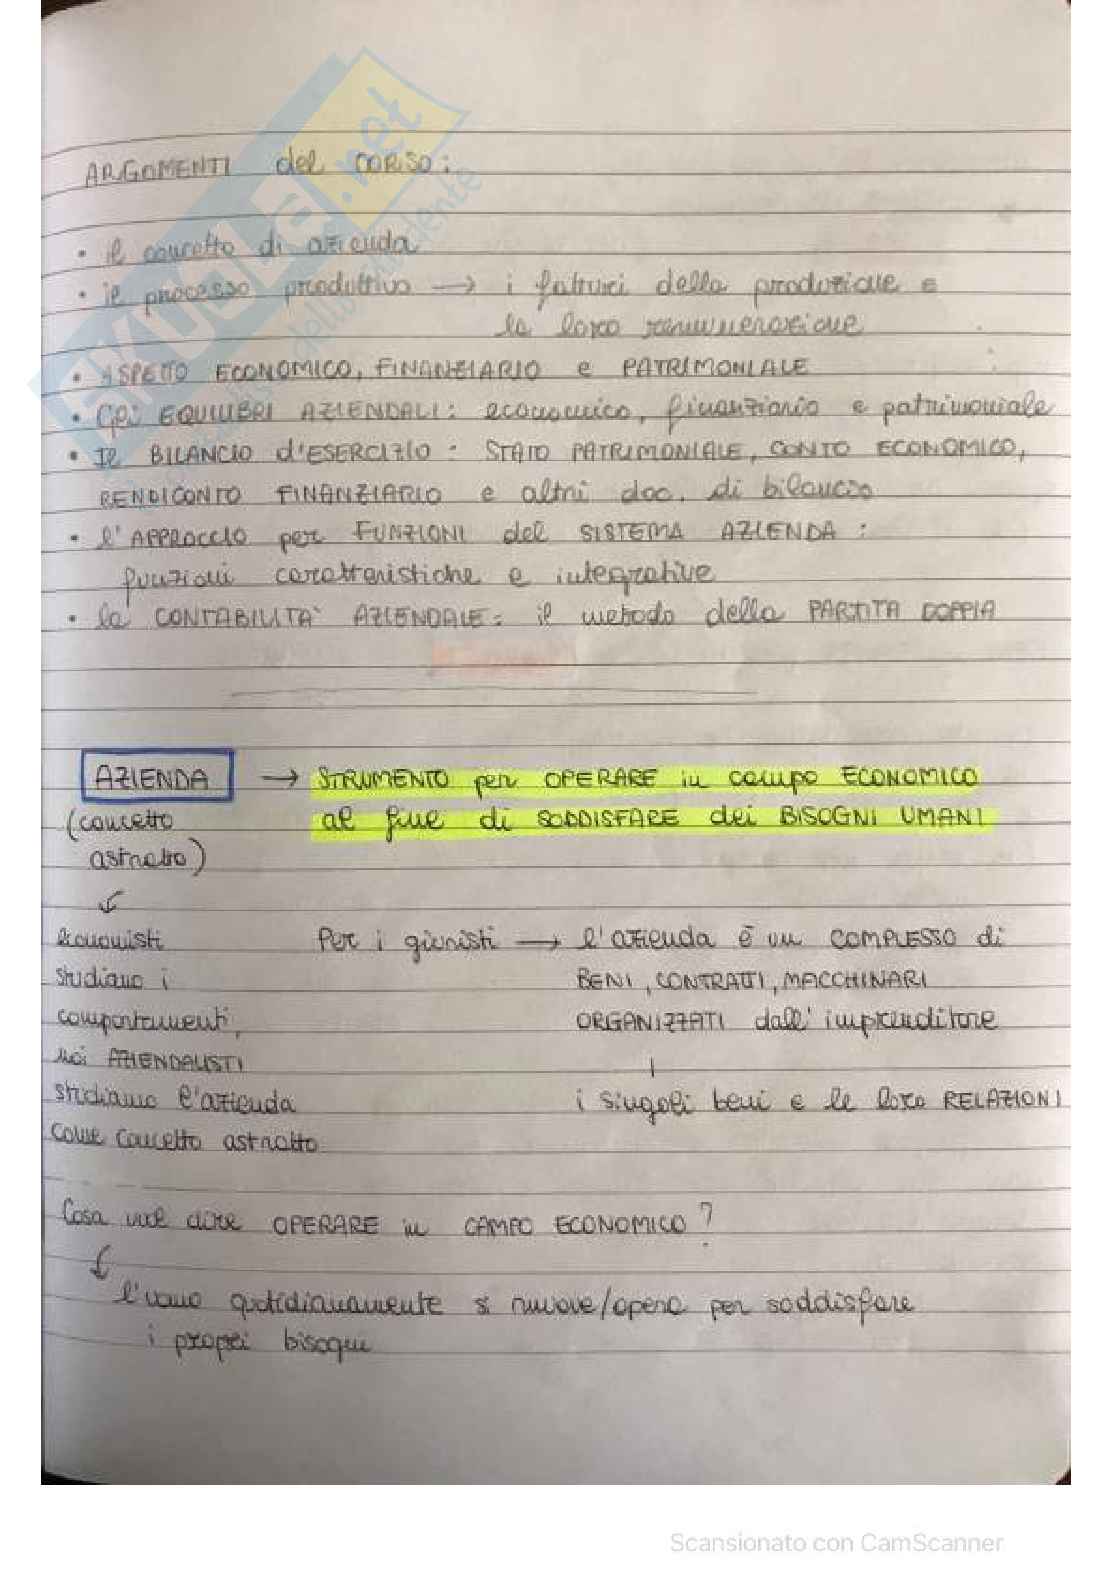 ARGOMENTI del CORSO:
• il concetto di azienda
• il processo produttivo → i fattori della produzione e
la loro remunerazione
• ASPETTO ECONOMICO, FINANZIARIO e PATRIMONIALE
• Gli EQUILIBRI AZIENDALI: economico, finanziario e patrimoniale
• Il BILANCIO d'ESERCIZIO: STATO PATRIMONIALE, CONTO ECONOMICO,
RENDICONTO FINANZIARIO e altri doc. di bilancio
• l'APPROCCIO per FUNZIONI del SISTEMA AZIENDA:
funzioni caratteristiche e integrative
• la CONTABILITÀ AZIENDALE: il metodo della PARTITA DOPPIA
AZIENDA → STRUMENTO per OPERARE in campo ECONOMICO
(concetto al fine di SODDISFARE dei BISOGNI UMANI
astratto)
↓
economisti Per i giuristi → l'azienda è un COMPLESSO di
studiano i BENI, CONTRATTI, MACCHINARI
comportamenti, ORGANIZZATI dall'imprenditore
noi AZIENDALISTI
studiamo l'azienda i singoli beni e le loro RELAZIONI
come concetto astratto
Cosa vuol dire OPERARE in CAMPO ECONOMICO?
↓
l'uomo quotidianamente si muove/opera per soddisfare
i propri bisogni
SKUOLA.net
Scansionato con CamScanner